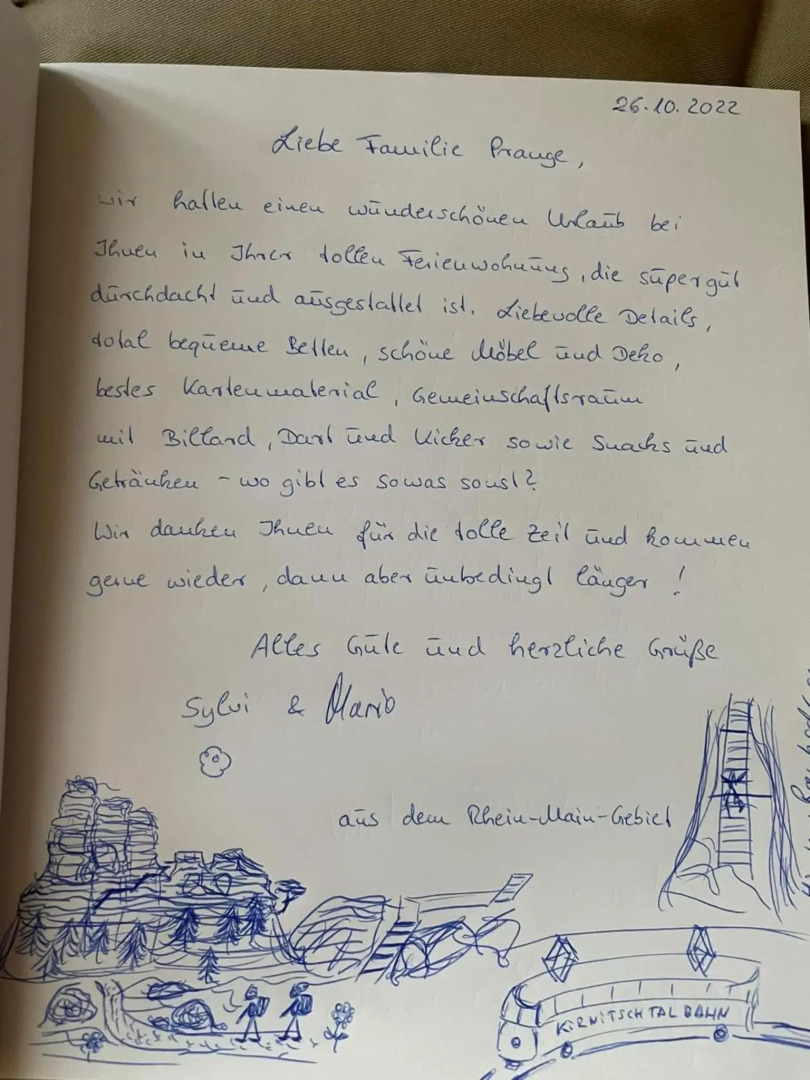 26.10.2022
Liebe Familie Prange,
wir hatten einen wunderschönen Urlaub bei
Ihnen in Ihrer tollen Ferienwohnung, die supergut
durchdacht und ausgestattet ist. Liebevolle Details,
total bequeme Betten, schöne Möbel und Deko,
bestes Kartenmaterial, Gemeinschaftsraum
mit Billard, Dart und Kicker sowie Snacks und
Getränken – wo gibt es sowas sonst?
Wir danken Ihnen für die tolle Zeit und kommen
gerne wieder, dann aber unbedingt länger!
Alles Gute und herzliche Grüße
Sylvi & Mario
aus dem Rhein-Main-Gebiet
KIRNITSCHTALBAHN